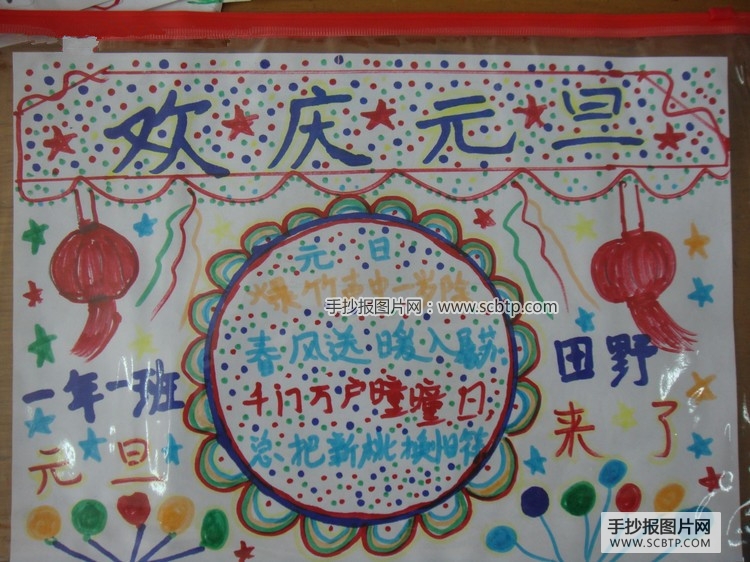 欢庆元旦
元日
爆竹声中一岁除
手抄报图片网：www.scbtp.com
春风送暖入屠苏
千门万户曈曈日
总把新桃换旧符
一年一班
元旦
田野
来了
手抄报图片网
WWW.SCBTP.COM